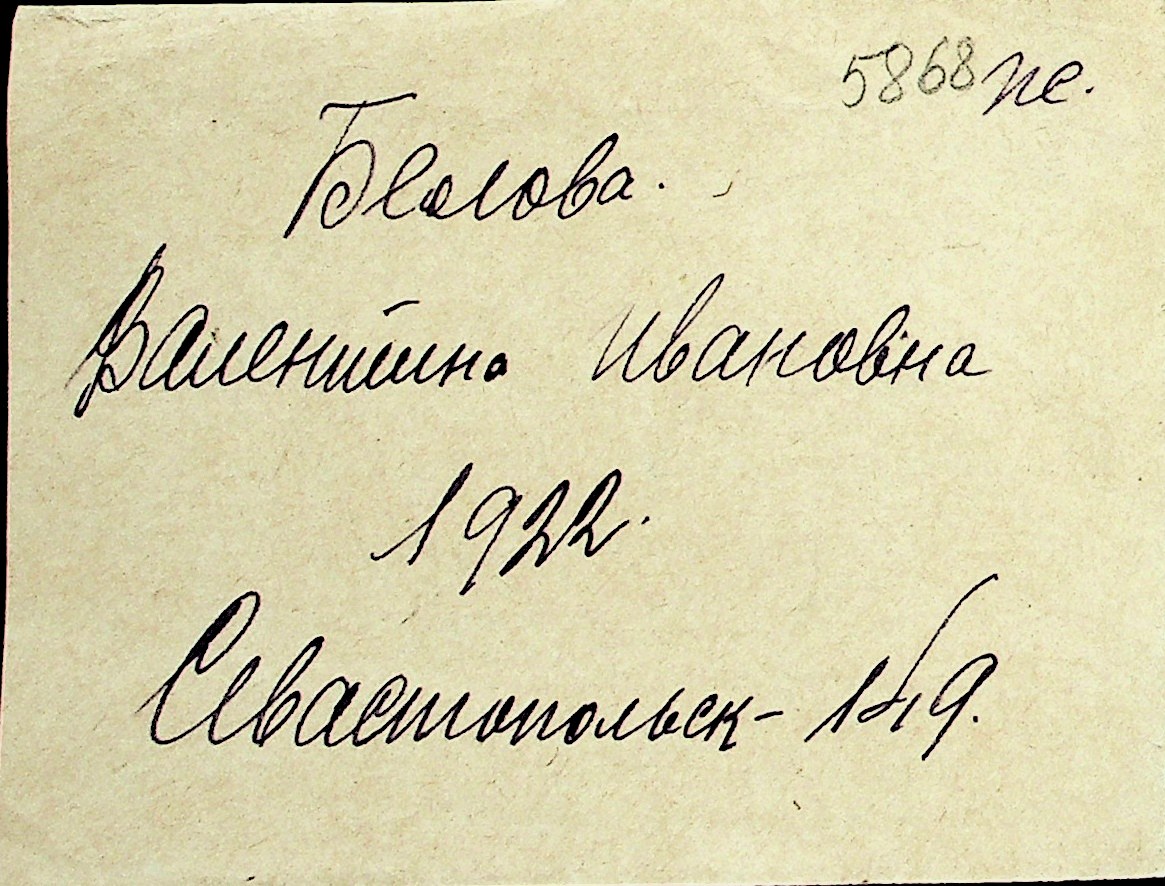 5868 пс.
Белова.
Валентина Ивановна
1922.
Севастопольск-